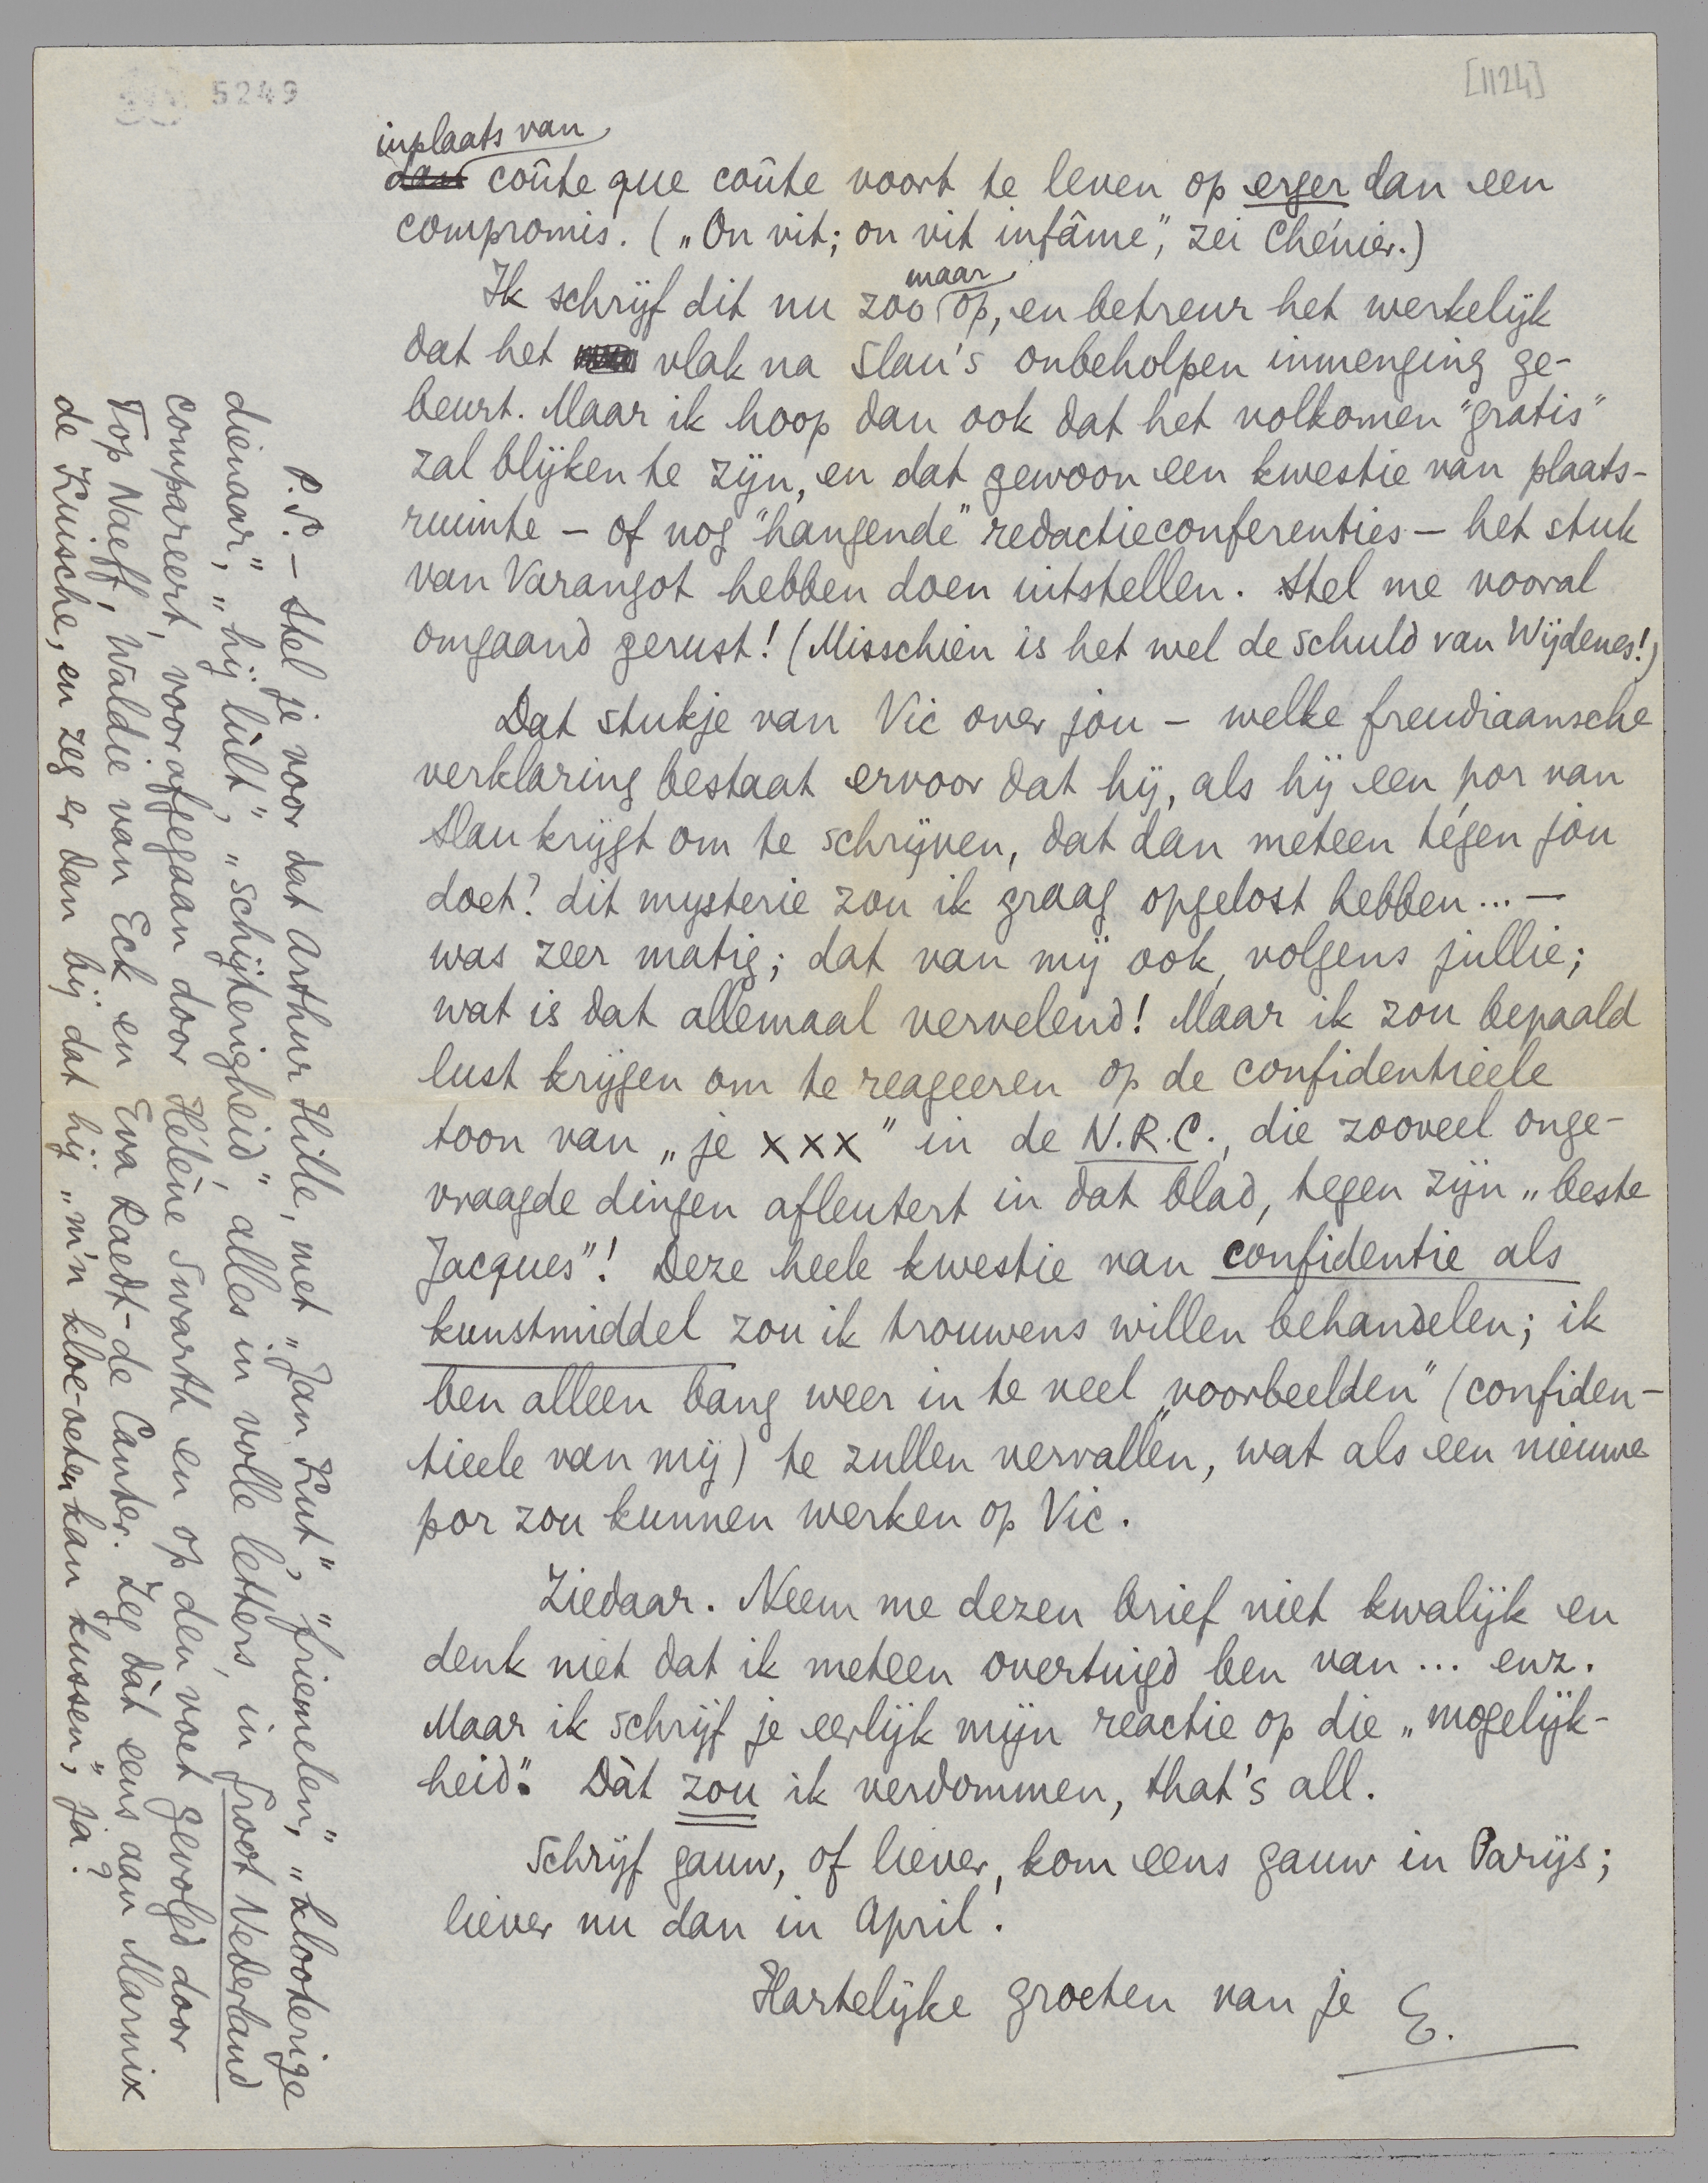 5249
[1124]
inplaats van
dan coûte que coûte voort te leven op erger dan een
compromis. („On vit; on vit infâme”, zei Chénier.)
maar
Ik schrijf dit nu zoo op, en betreur het werkelijk
dat het vlak na Slau's onbeholpen inmenging ge-
beurt. Maar ik hoop dan ook dat het volkomen "gratis"
zal blijken te zijn, en dat gewoon een kwestie van plaats-
ruimte – of nog "hangende" redactieconferenties – het stuk
van Varangot hebben doen uitstellen. Stel me vooral
omgaand gerust! (Misschien is het wel de schuld van Wijdenes!)
Dat stukje van Vic over jou – welke freudiaansche
verklaring bestaat ervoor dat hij, als hij een por van
Slau krijgt om te schrijven, dat dan meteen tégen jou
doet? dit mysterie zou ik graag opgelost hebben... –
was zeer matig; dat van mij ook, volgens jullie;
wat is dat allemaal vervelend! Maar ik zou bepaald
lust krijgen om te reageeren op de confidentieele
toon van „je xxx" in de N.R.C., die zooveel onge-
vraagde dingen afleutert in dat blad, tegen zijn „beste
Jacques"! Deze heele kwestie van confidentie als
kunstmiddel zou ik trouwens willen behandelen; ik
ben alleen bang weer in te veel „voorbeelden" (confiden-
tieele van mij) te zullen vervallen, wat als een nieuwe
por zou kunnen werken op Vic.
Ziedaar. Neem me dezen brief niet kwalijk en
denk niet dat ik meteen overtuigd ben van... enz.
Maar ik schrijf je eerlijk mijn reactie op die „mogelijk-
heid". Dàt zou ik verdommen, that's all.
Schrijf gauw, of liever, kom eens gauw in Parijs;
liever nu dan in April.
Hartelijke groeten van je E.
P.S. – Stel je voor dat Arthur Hille, met „Jan Kut", „friemelen", „klooterige
dienaar", „hij lult", „schijterigheid", alles in volle letters, in Groot Nederland
compareert, voorafgegaan door Hélène Swarth en op den voet gevolgd door
Top Naeff, Waldie van Eck en Eva Raedt-de Canter. Zeg dàt eens aan Marnix
de Kuische, en zeg er dan bij dat hij „m'n kloe-oeten kan kussen", ja?